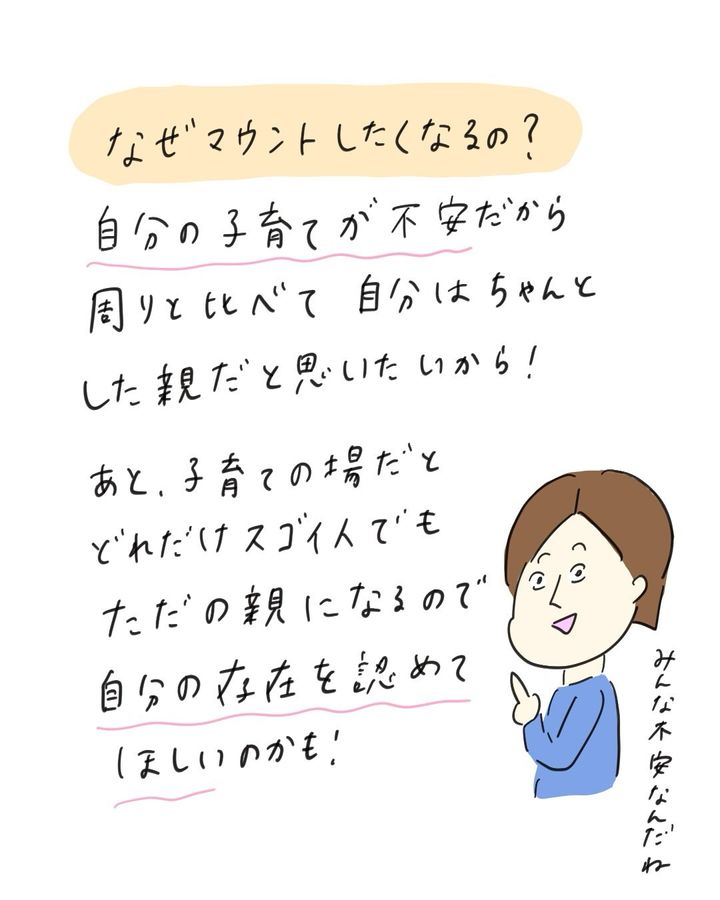 なぜマウントしたくなるの？
自分の子育てが不安だから
周りと比べて 自分はちゃんと
した親だと思いたいから！
あと、子育ての場だと
どれだけスゴイ人でも
ただの親になるので
自分の存在を認めて
ほしいのかも！
みんな不安なんだね